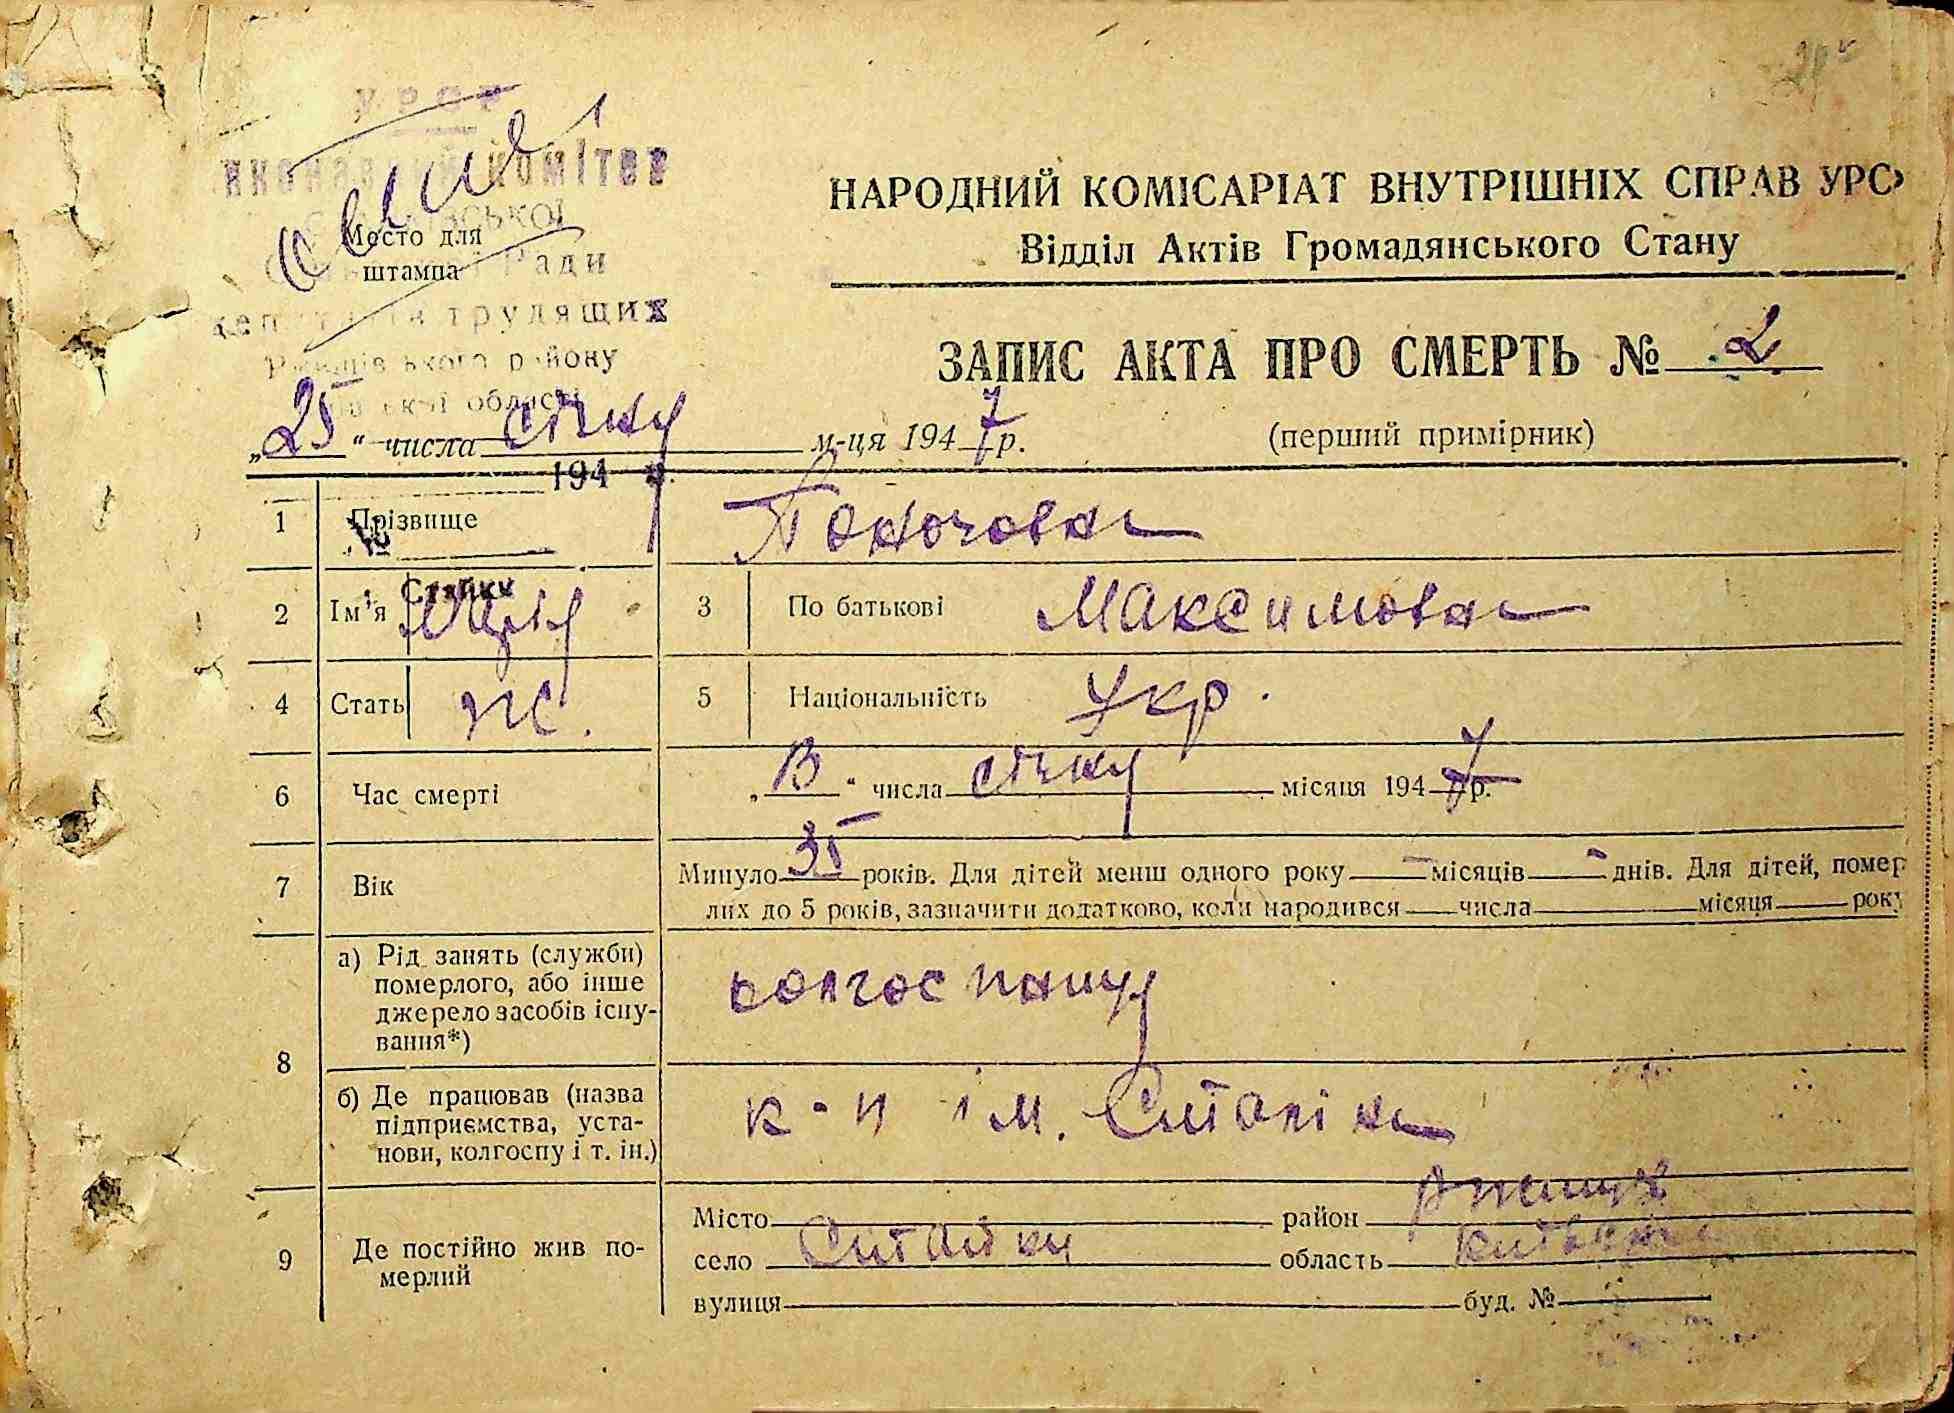 УРСР
комітет
Ради
Место для
штампа
трудящих
району
області
НАРОДНИЙ КОМІСАРІАТ ВНУТРІШНІХ СПРАВ УРС
Відділ Актів Громадянського Стану
ЗАПИС АКТА ПРО СМЕРТЬ № 2
„25“ числа січня м-ця 1947 р.
(перший примірник)
194 р.
1 Прізвище
№
Стайки
2 Ім'я Марія 3 По батькові Максимовна
4 Стать ж. 5 Національність Укр.
6 Час смерті „13“ числа січня місяця 1947 р.
7 Вік Минуло 35 років. Для дітей менш одного року — місяців — днів. Для дітей, помер
лих до 5 років, зазначити додатково, коли народився числа місяця року
8 а) Рід занять (служби)
померлого, або інше
джерело засобів існу-
вання*)
колгоспниця
б) Де працював (назва
підприємства, уста-
нови, колгоспу і т. ін.)
к-п ім. Сталіна
9 Де постійно жив по-
мерлий
Місто район Ржищів
село Стайки область Київська
вулиця буд. №